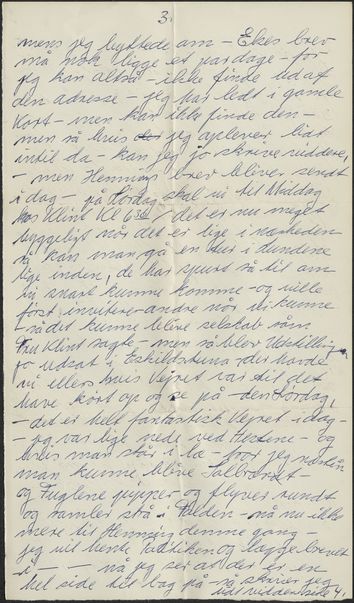 3.
mens jeg byttede om – Ekes brev
må nok ligge et par dage – for
jeg kan altså – ikke finde ud af
den adresse – jeg har ledt i gamle
kort – men kan ikke finde den –
men så hvis jeg oplever lidt
indtil da – kan jeg jo skrive videre,
– men Hennings brev bliver sendt
i dag – på Lördag skal vi til Middag
hos Klint Kl 6 30 / det er nu meget
hyggeligt når det er lige i nærheden
så kan man gå en tur i lundene
lige inden, de har spurt så tit om
vi snart kunne komme – og ville
først invitere andre når vi kunne
– så det kunne blive selskab som
Fru Klint sagte – men så blev Udstilling
jo udsat i Eskildstuna – der havde
vi ellers hvis Vejret var til det
have kört op og se på – den Lördag,
– det er helt fantastisk Vejret i dag –
– jeg var lige nede ved Hestene – og
hvis man står i læ – tror jeg næsten
man kunne blive Solbrændt –
og Fuglene pipper – og flyver rundt
og samler strå i Folden – nå nu ikke
mere til Henning denne gang –
jeg vil hente Taktiken og lægge brevet
i – – – nå jeg ser at der er en
hel side til bag på – så skriver jeg
lidt videre side 4.